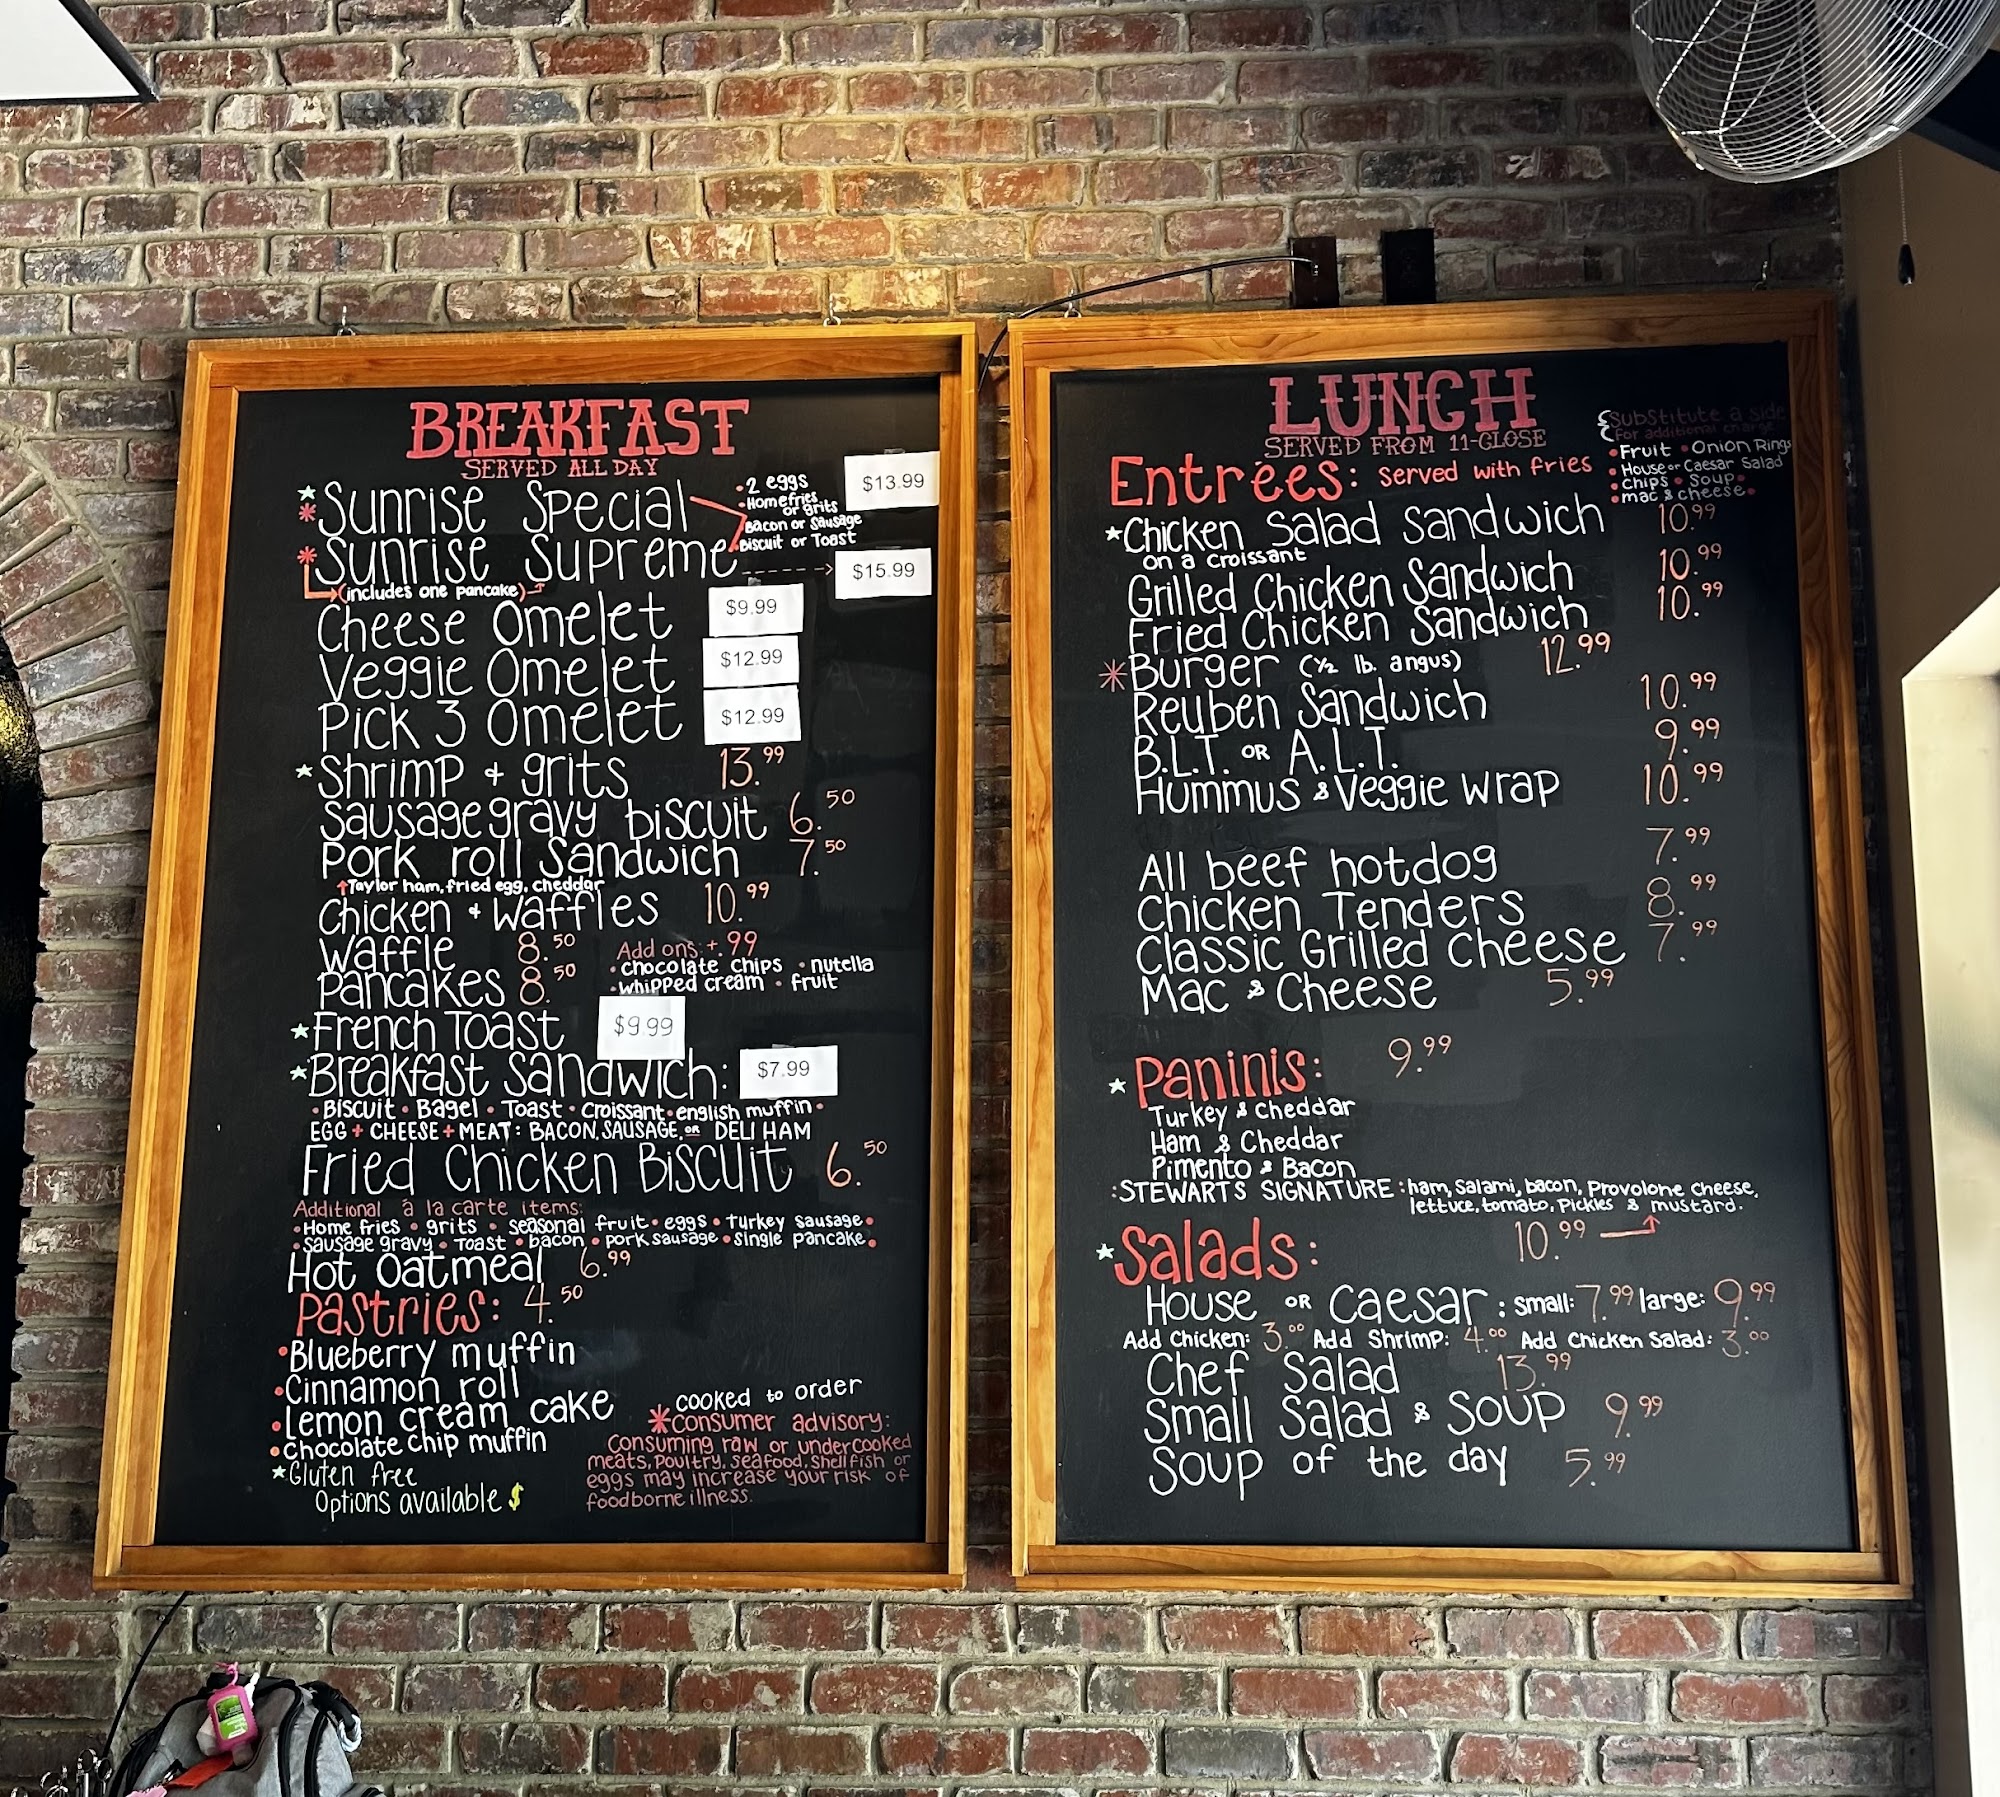 BREAKFAST
SERVED ALL DAY
★ * Sunrise Special
• 2 eggs
• Homefries or grits
• Bacon or Sausage
• Biscuit or Toast
$13.99
* Sunrise Supreme
$15.99
(includes one pancake)
Cheese Omelet $9.99
Veggie Omelet $12.99
Pick 3 Omelet $12.99
★ Shrimp + grits 13.99
Sausage gravy biscuit 6.50
Pork roll Sandwich 7.50
↑ Taylor ham, fried egg, cheddar
Chicken + Waffles 10.99
Waffle 8.50
Pancakes 8.50
Add ons: + .99
• chocolate chips • nutella
• whipped cream • fruit
★ French Toast $9.99
★ Breakfast Sandwich: $7.99
• Biscuit • Bagel • Toast • Croissant • english muffin •
EGG + CHEESE + MEAT: BACON, SAUSAGE, OR DELI HAM
Fried Chicken Biscuit 6.50
Additional à la carte items:
• Home fries • grits • seasonal fruit • eggs • turkey sausage •
• sausage gravy • Toast • bacon • pork sausage • single pancake •
Hot Oatmeal 6.99
Pastries: 4.50
• Blueberry muffin
• Cinnamon roll
• Lemon cream cake
• Chocolate chip muffin
★ Gluten free
Options available $
cooked to order
* Consumer advisory:
Consuming raw or undercooked
meats, poultry, seafood, shellfish or
eggs may increase your risk of
foodborne illness.
LUNCH
SERVED FROM 11-CLOSE
Substitute a side
for additional charge
• Fruit • Onion Rings
• House or Caesar Salad
• Chips • Soup •
• mac & cheese •
Entrées: served with fries
★ Chicken Salad Sandwich 10.99
on a croissant
Grilled Chicken Sandwich 10.99
Fried Chicken Sandwich 10.99
* Burger (1/2 lb. angus) 12.99
Reuben Sandwich 10.99
B.L.T. OR A.L.T. 9.99
Hummus & Veggie Wrap 10.99
All beef hotdog 7.99
Chicken Tenders 8.99
Classic Grilled Cheese 7.99
Mac & Cheese 5.99
★ Paninis: 9.99
Turkey & Cheddar
Ham & Cheddar
Pimento & Bacon
:STEWARTS SIGNATURE: ham, salami, bacon, Provolone cheese,
lettuce, tomato, Pickles & mustard.
10.99
★ Salads:
House OR Caesar: small: 7.99 large: 9.99
Add Chicken: 3.00 Add Shrimp: 4.00 Add Chicken Salad: 3.00
Chef Salad 13.99
Small Salad & Soup 9.99
Soup of the day 5.99